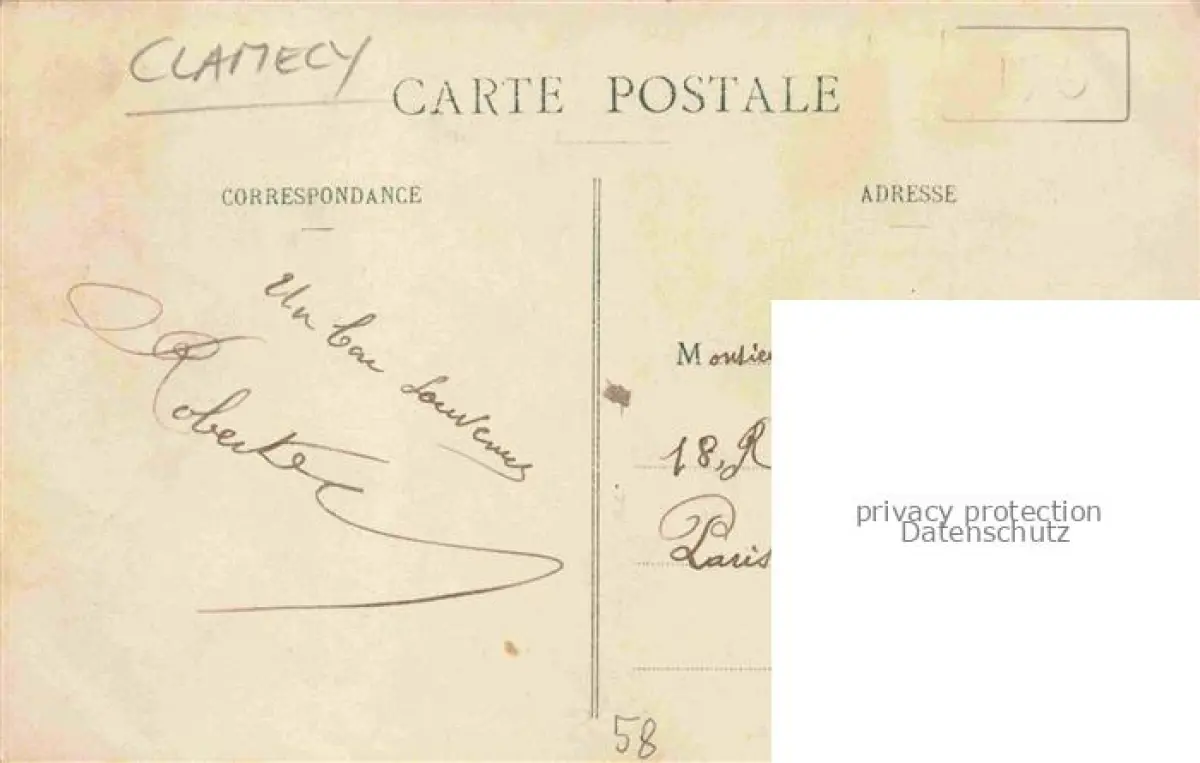 CLAMECY
CARTE POSTALE
CORRESPONDANCE
ADRESSE
Un bon souvenir
Roberte
Monsieu
18, R
Paris
privacy protection
Datenschutz
58